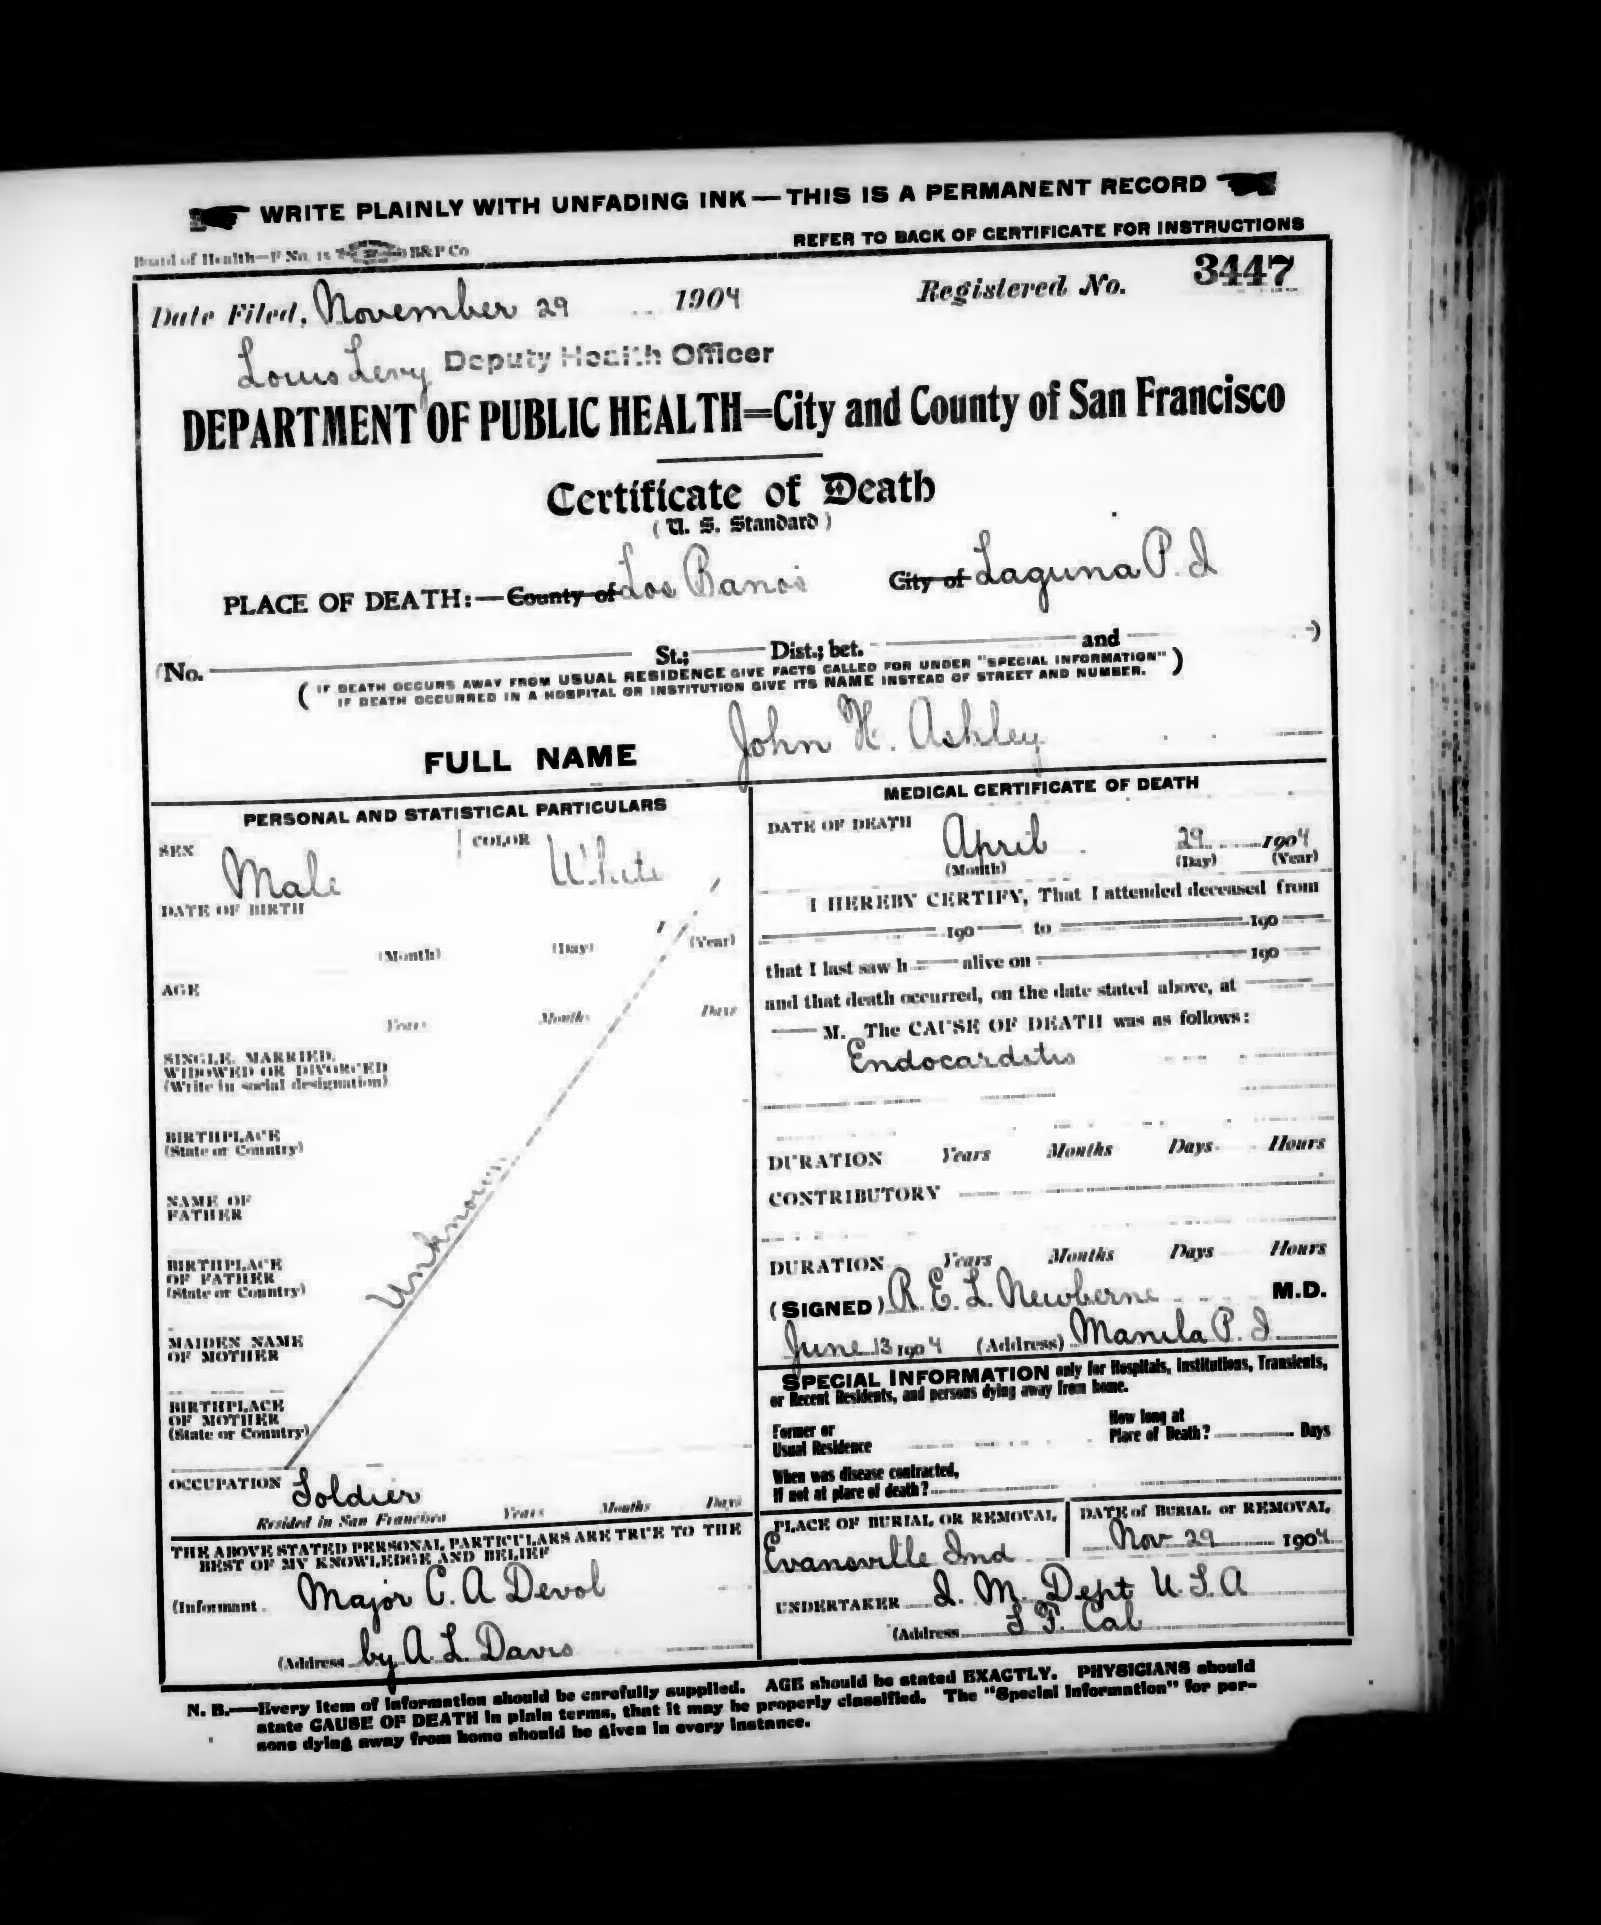 WRITE PLAINLY WITH UNFADING INK — THIS IS A PERMANENT RECORD
REFER TO BACK OF CERTIFICATE FOR INSTRUCTIONS
Board of Health—F No. 15 B&P Co
Date Filed, November 29 1904 Registered No. 3447
Louis Levy Deputy Health Officer
DEPARTMENT OF PUBLIC HEALTH=City and County of San Francisco
Certificate of Death
(U. S. Standard)
PLACE OF DEATH:—County of Los Banos City of Laguna P. I
(No. St.; Dist.; bet. and )
( IF DEATH OCCURS AWAY FROM USUAL RESIDENCE GIVE FACTS CALLED FOR UNDER "SPECIAL INFORMATION" )
IF DEATH OCCURRED IN A HOSPITAL OR INSTITUTION GIVE ITS NAME INSTEAD OF STREET AND NUMBER.
FULL NAME John H. Ashley
PERSONAL AND STATISTICAL PARTICULARS
SEX Male COLOR White
DATE OF BIRTH
(Month) (Day) (Year)
AGE
Years Months Days
SINGLE, MARRIED,
WIDOWED OR DIVORCED
(Write in social designation)
BIRTHPLACE
(State or Country)
NAME OF
FATHER
Unknown
BIRTHPLACE
OF FATHER
(State or Country)
MAIDEN NAME
OF MOTHER
BIRTHPLACE
OF MOTHER
(State or Country)
OCCUPATION Soldier
Resided in San Francisco Years Months Days
THE ABOVE STATED PERSONAL PARTICULARS ARE TRUE TO THE
BEST OF MY KNOWLEDGE AND BELIEF
(Informant Major C. A Devol
(Address by A. L. Davis
MEDICAL CERTIFICATE OF DEATH
DATE OF DEATH April 29 1904
(Month) (Day) (Year)
I HEREBY CERTIFY, That I attended deceased from
190 to 190
that I last saw h alive on 190
and that death occurred, on the date stated above, at
M. The CAUSE OF DEATH was as follows:
Endocarditis
DURATION Years Months Days Hours
CONTRIBUTORY
DURATION Years Months Days Hours
(SIGNED) R. E. L. Newberne M.D.
June 13 1904 (Address) Manila P. I
SPECIAL INFORMATION only for Hospitals, Institutions, Transients,
or Recent Residents, and persons dying away from home.
Former or
Usual Residence
How long at
Place of Death? Days
When was disease contracted,
If not at place of death?
PLACE OF BURIAL OR REMOVAL DATE of BURIAL or REMOVAL
Evansville Ind Nov 29 1904
UNDERTAKER Q. M. Dept U. S. A
(Address S F. Cal
N. B.—Every item of information should be carefully supplied. AGE should be stated EXACTLY. PHYSICIANS should
state CAUSE OF DEATH in plain terms, that it may be properly classified. The "Special Information" for per-
sons dying away from home should be given in every instance.